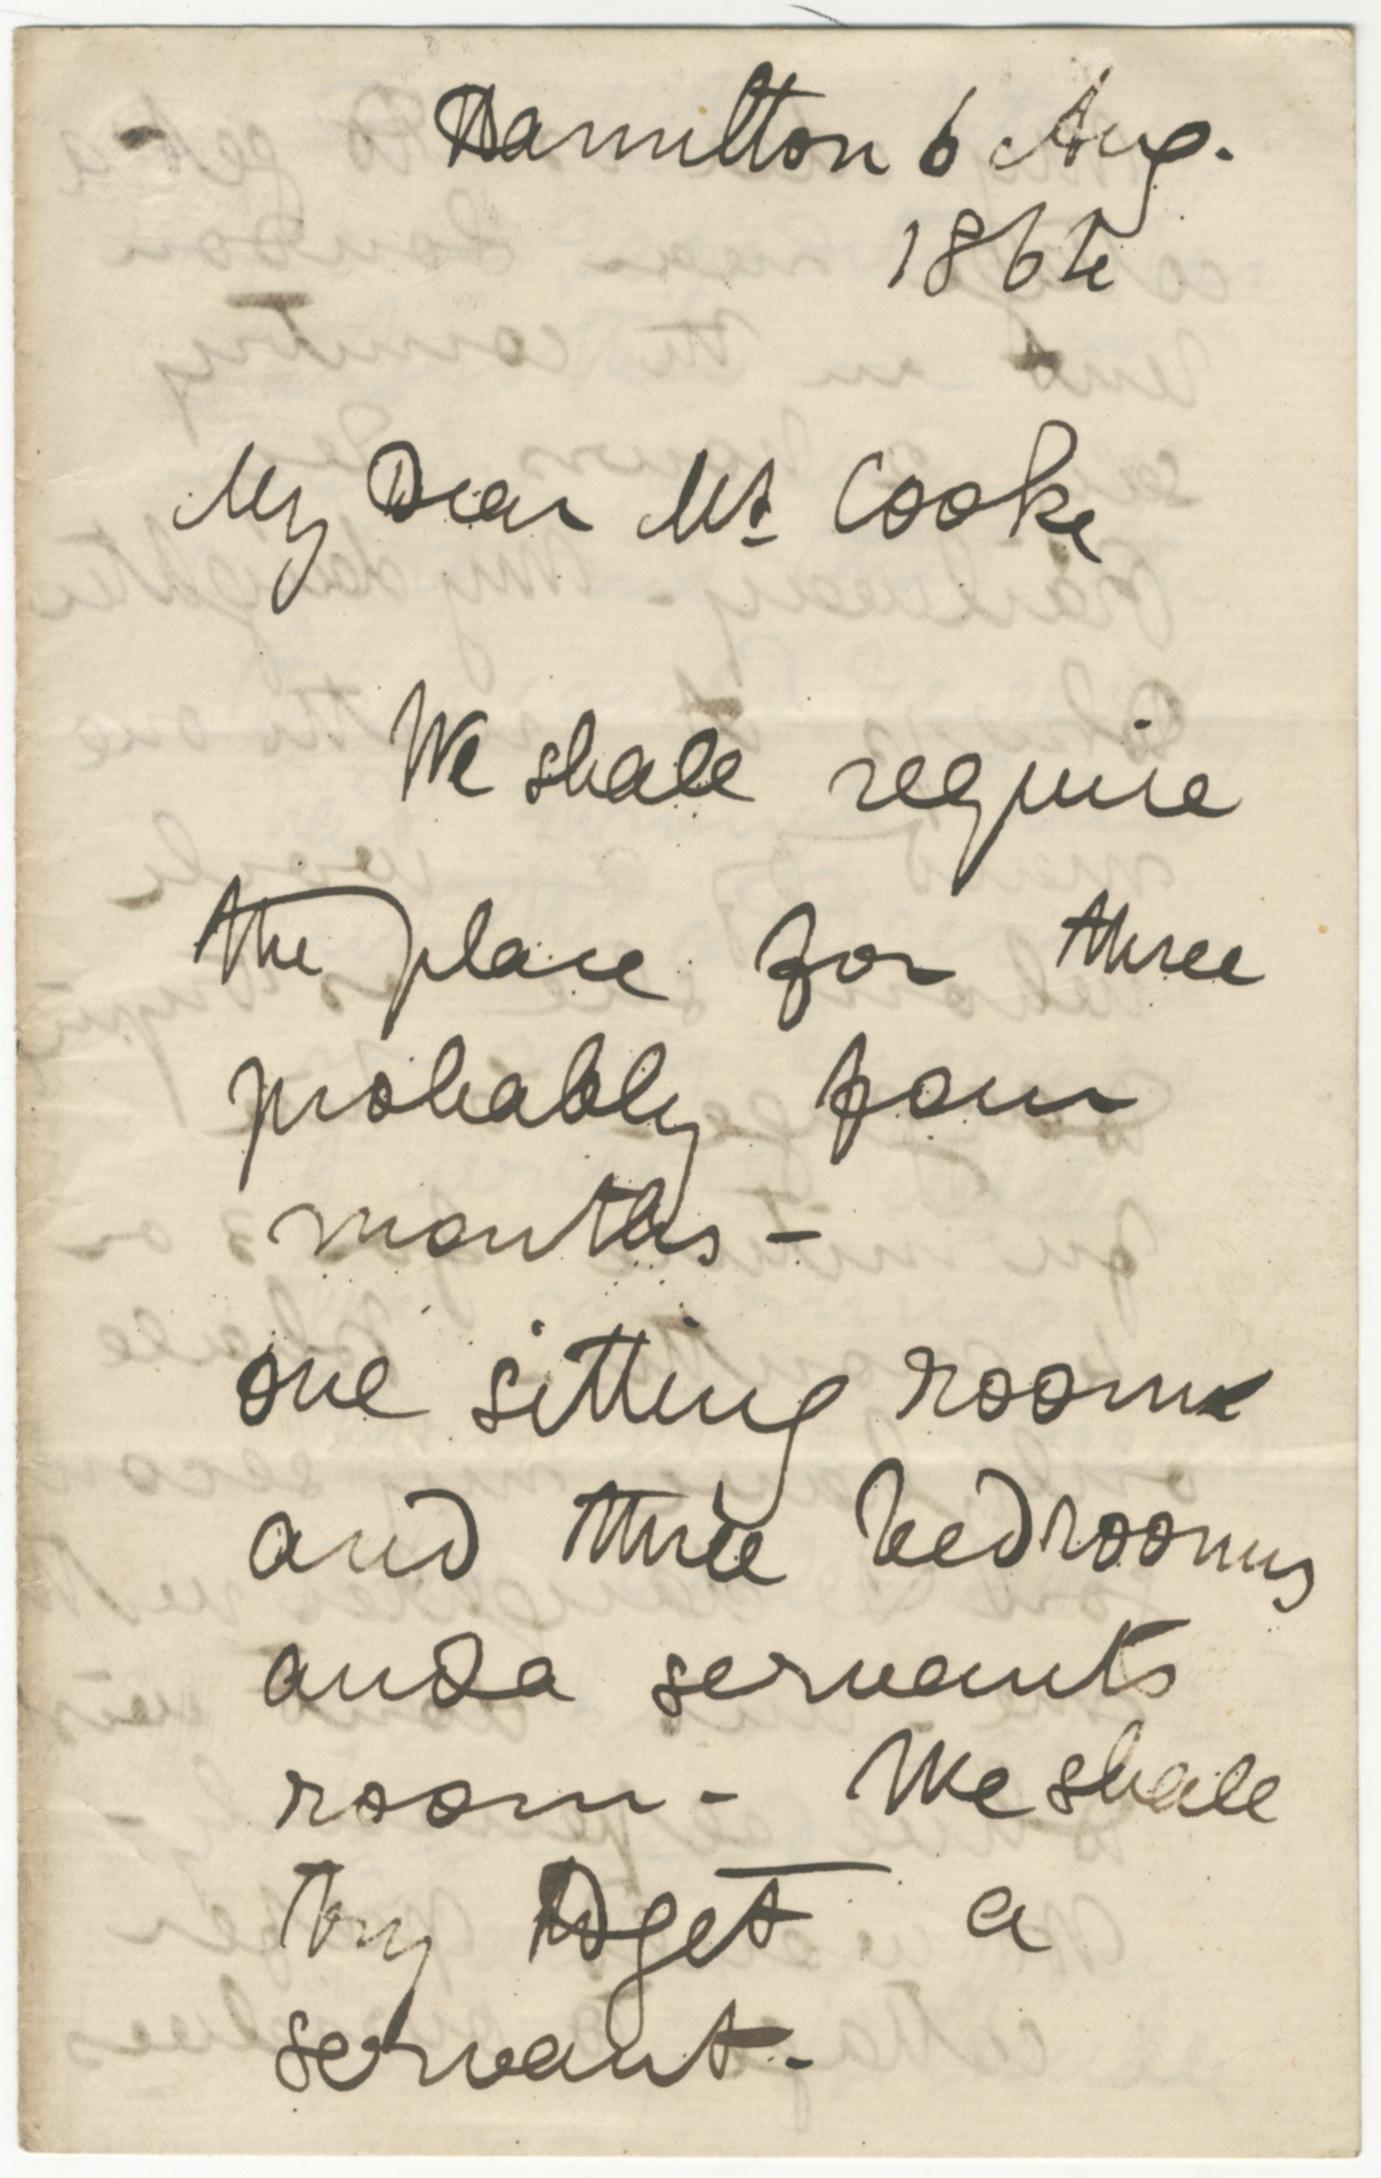 Hamilton 6 Aug.
1864
My Dear Mr Cooke
We shall require
the place for three
probably four
months -
one sitting room
and three bedrooms
and a servants
room - We shall
try to get a
servant -